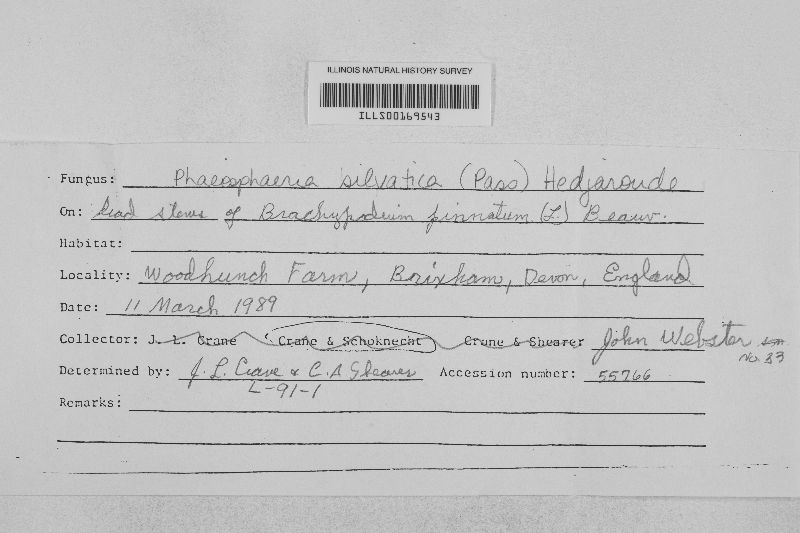 ILLINOIS NATURAL HISTORY SURVEY
ILLS00169543
Fungus: Phaeosphaeria silvatica (Pass) Hedjaroude
On: dead stems of Brachypodium pinnatum (L.) Beauv.
Habitat:
Locality: Woodhunch Farm, Brixham, Devon, England
Date: 11 March 1989
Collector: J. L. Crane Crane & Schoknecht Crane & Shearer John Webster
No. 83
Determined by: J. L. Crane & C. A. Shearer Accession number: 55766
L-91-1
Remarks: